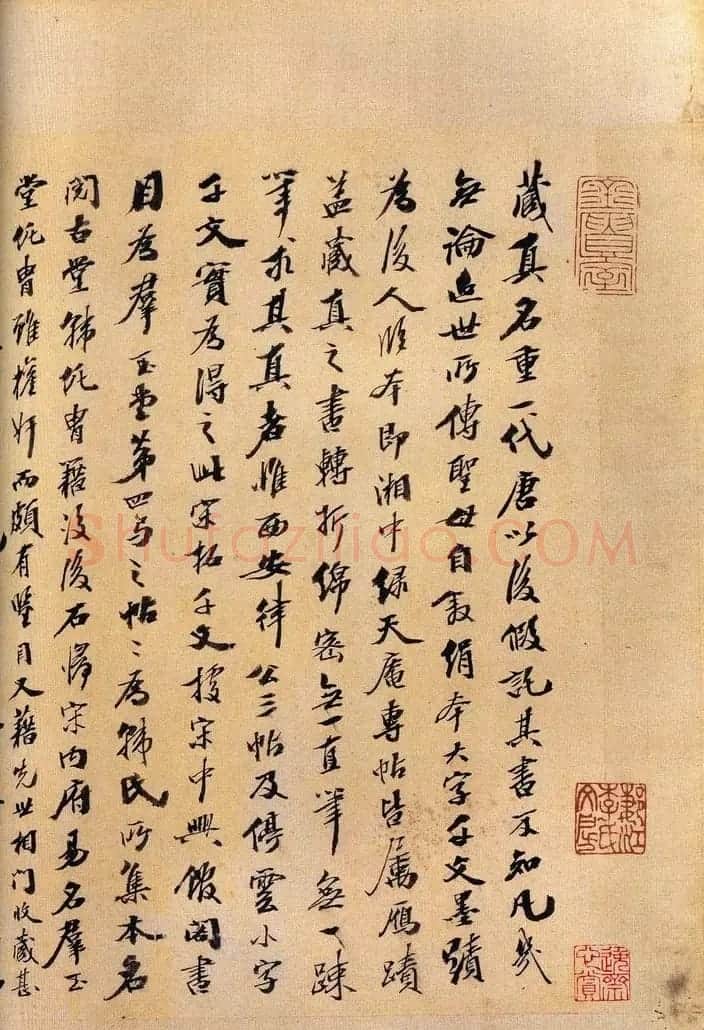 藏真名重一代唐以後假託其書不知凡幾
無論近世所傳聖母自敘絹本大字千文墨蹟
為後人臨本即湘中綠天庵專帖皆屬鴈蹟
蓋藏真之書轉折綿密無一直筆無一疎
筆求其真者惟西安律公三帖及停雲小字
千文實為得之此宋拓千文據宋中興館閣書
目為羣玉堂第四之帖〻為韓氏所集本名
閱古堂韓侂冑籍沒後石歸宋內府易名羣玉
堂侂冑雖權奸而頗有鑒目又藉先世相門收藏甚
Shufaziliao.COM